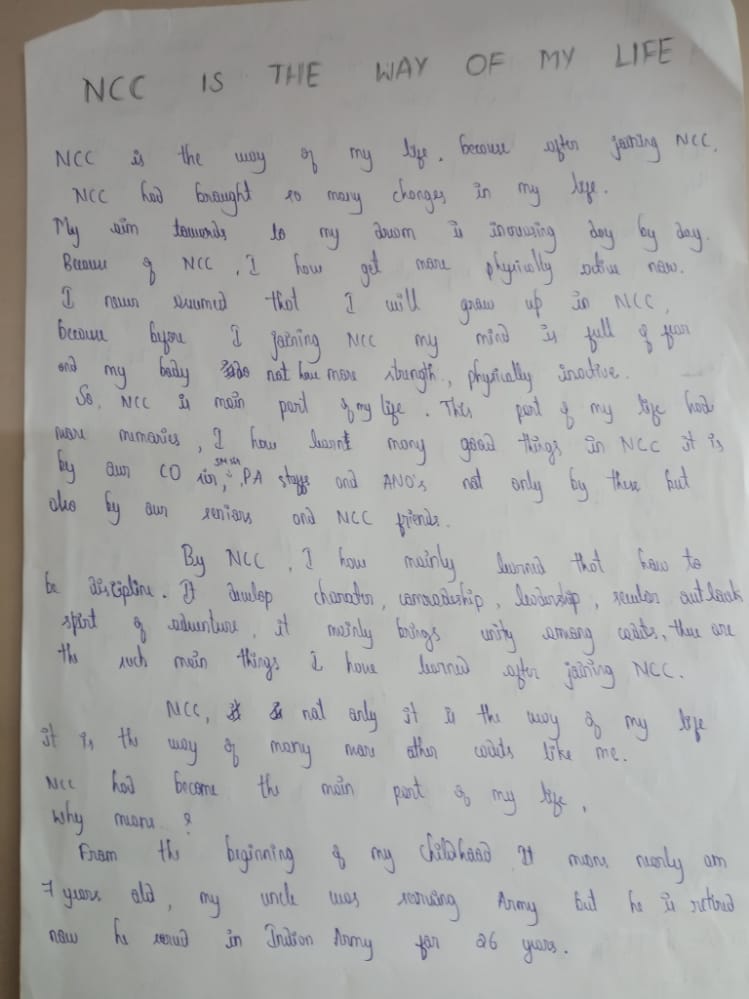 NCC IS THE WAY OF MY LIFE
NCC is the way of my life. because after joining NCC.
NCC had brought so many changes in my life.
My aim towards to my dream is increasing day by day.
Because of NCC, I have get more physically active now.
I never seemed that I will grow up in NCC,
because before I joining NCC my mind is full of fear
and my body not have more strength, physically inactive.
So, NCC is main part of my life. This part of my life had
more memories, I have learnt many good things in NCC it is
by our CO sir, PA staffs and ANO's not only by these but
also by our seniors and NCC friends.
By NCC, I have mainly learned that how to
be discipline. It develop character, comradeship, leadership, secular outlook
spirit of adventure, it mainly brings unity among cadets, these are
the such main things I have learned after joining NCC.
NCC, not only it is the way of my life
it is the way of many more other cadets like me.
NCC had become the main part of my life,
Why means?
From the beginning of my childhood It means nearly am
7 years old, my uncle was serving Army but he is retired
now he served in Indian Army for 26 years.